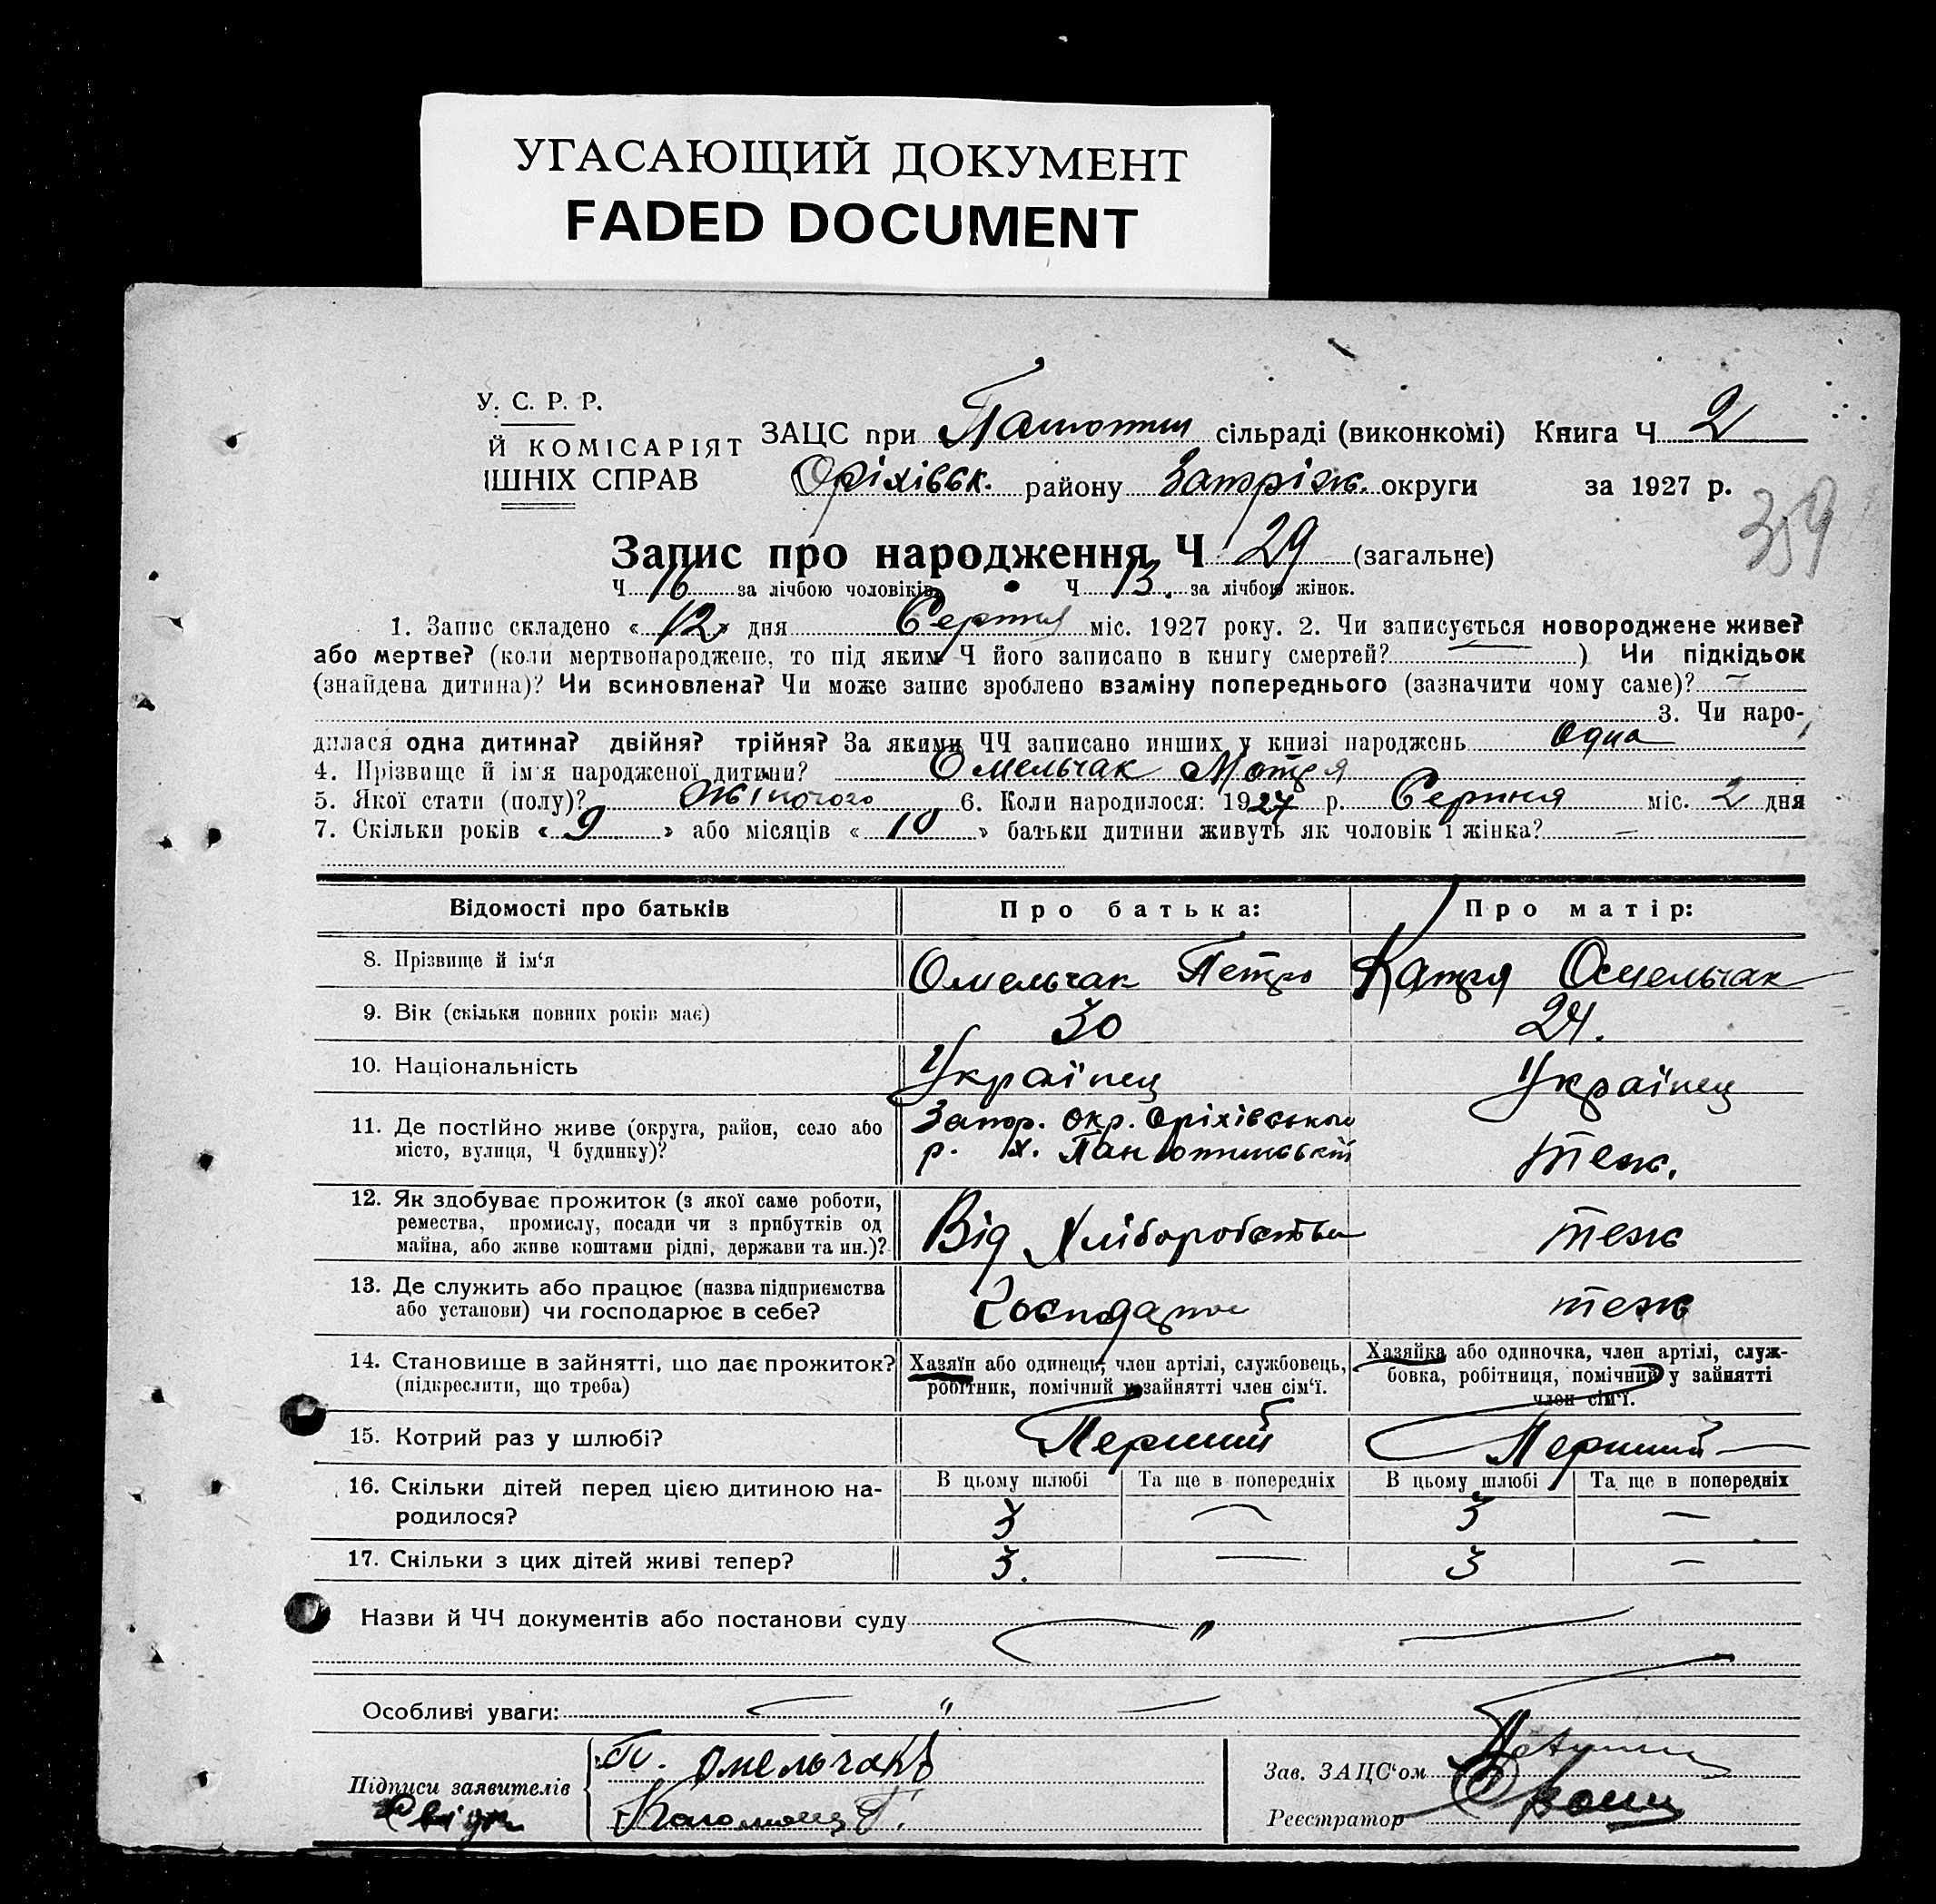 УГАСАЮЩИЙ ДОКУМЕНТ
FADED DOCUMENT
У. С. Р. Р.
Й КОМІСАРІЯТ
ІШНІХ СПРАВ
ЗАЦС при сільраді (виконкомі) Книга Ч 2
Оріхівськ. району Запоріж. округи за 1927 р.
359
Запис про народження Ч 29 (загальне)
Ч 16 за лічбою чоловіків Ч 13. за лічбою жінок.
1. Запис складено «12» дня Серпня міс. 1927 року. 2. Чи записується новороджене живе?
або мертве? (коли мертвонароджене, то під яким Ч його записано в книгу смертей? ) Чи підкідьок
(знайдена дитина)? Чи всиновлена? Чи може запис зроблено взаміну попереднього (зазначити чому саме)? —
3. Чи наро-
дилася одна дитина? двійня? трійня? За якими ЧЧ записано инших у книзі народжень Одна
4. Прізвище й ім'я народженої дитини? Омельчак Мотря
5. Якої стати (полу)? Жіночого 6. Коли народилося: 1927 р. Серпня міс. 2 дня
7. Скільки років «9» або місяців «10» батьки дитини живуть як чоловік і жінка? —
Відомості про батьків Про батька: Про матір:
8. Прізвище й ім‘я Омельчак Петро Катря Омельчак
9. Вік (скільки повних років має) 30 24.
10. Національність Українец Українец
11. Де постійно живе (округа, район, село або Запор. окр. Оріхівського
місто, вулиця, Ч будинку)? р. х. Панютинський теж.
12. Як здобуває прожиток (з якої саме роботи,
ремества, промислу, посади чи з прибутків од Від Хліборобства теж
майна, або живе коштами рідні, держави та ин.)?
13. Де служить або працює (назва підприємства
або установи) чи господарює в себе? теж
14. Становище в зайнятті, що дає прожиток? Хазяїн або одинець, член артілі, службовець, Хазяйка або одиночка, член артілі, служ-
(підкреслити, що треба) робітник, помічний у зайнятті член сім‘ї. бовка, робітниця, помічний у зайнятті
член сім‘ї.
15. Котрий раз у шлюбі? Перший Перший —
16. Скільки дітей перед цією дитиною на- В цьому шлюбі Та ще в попередніх В цьому шлюбі Та ще в попередніх
родилося? 3 — 3 —
17. Скільки з цих дітей живі тепер? 3. — 3 —
Назви й ЧЧ документів або постанови суду — " —
Особливі уваги: — " —
Підписи заявителів П. Омельчакъ Зав. ЗАЦС‘ом
Свідк Коломоец Г. Реєстратор